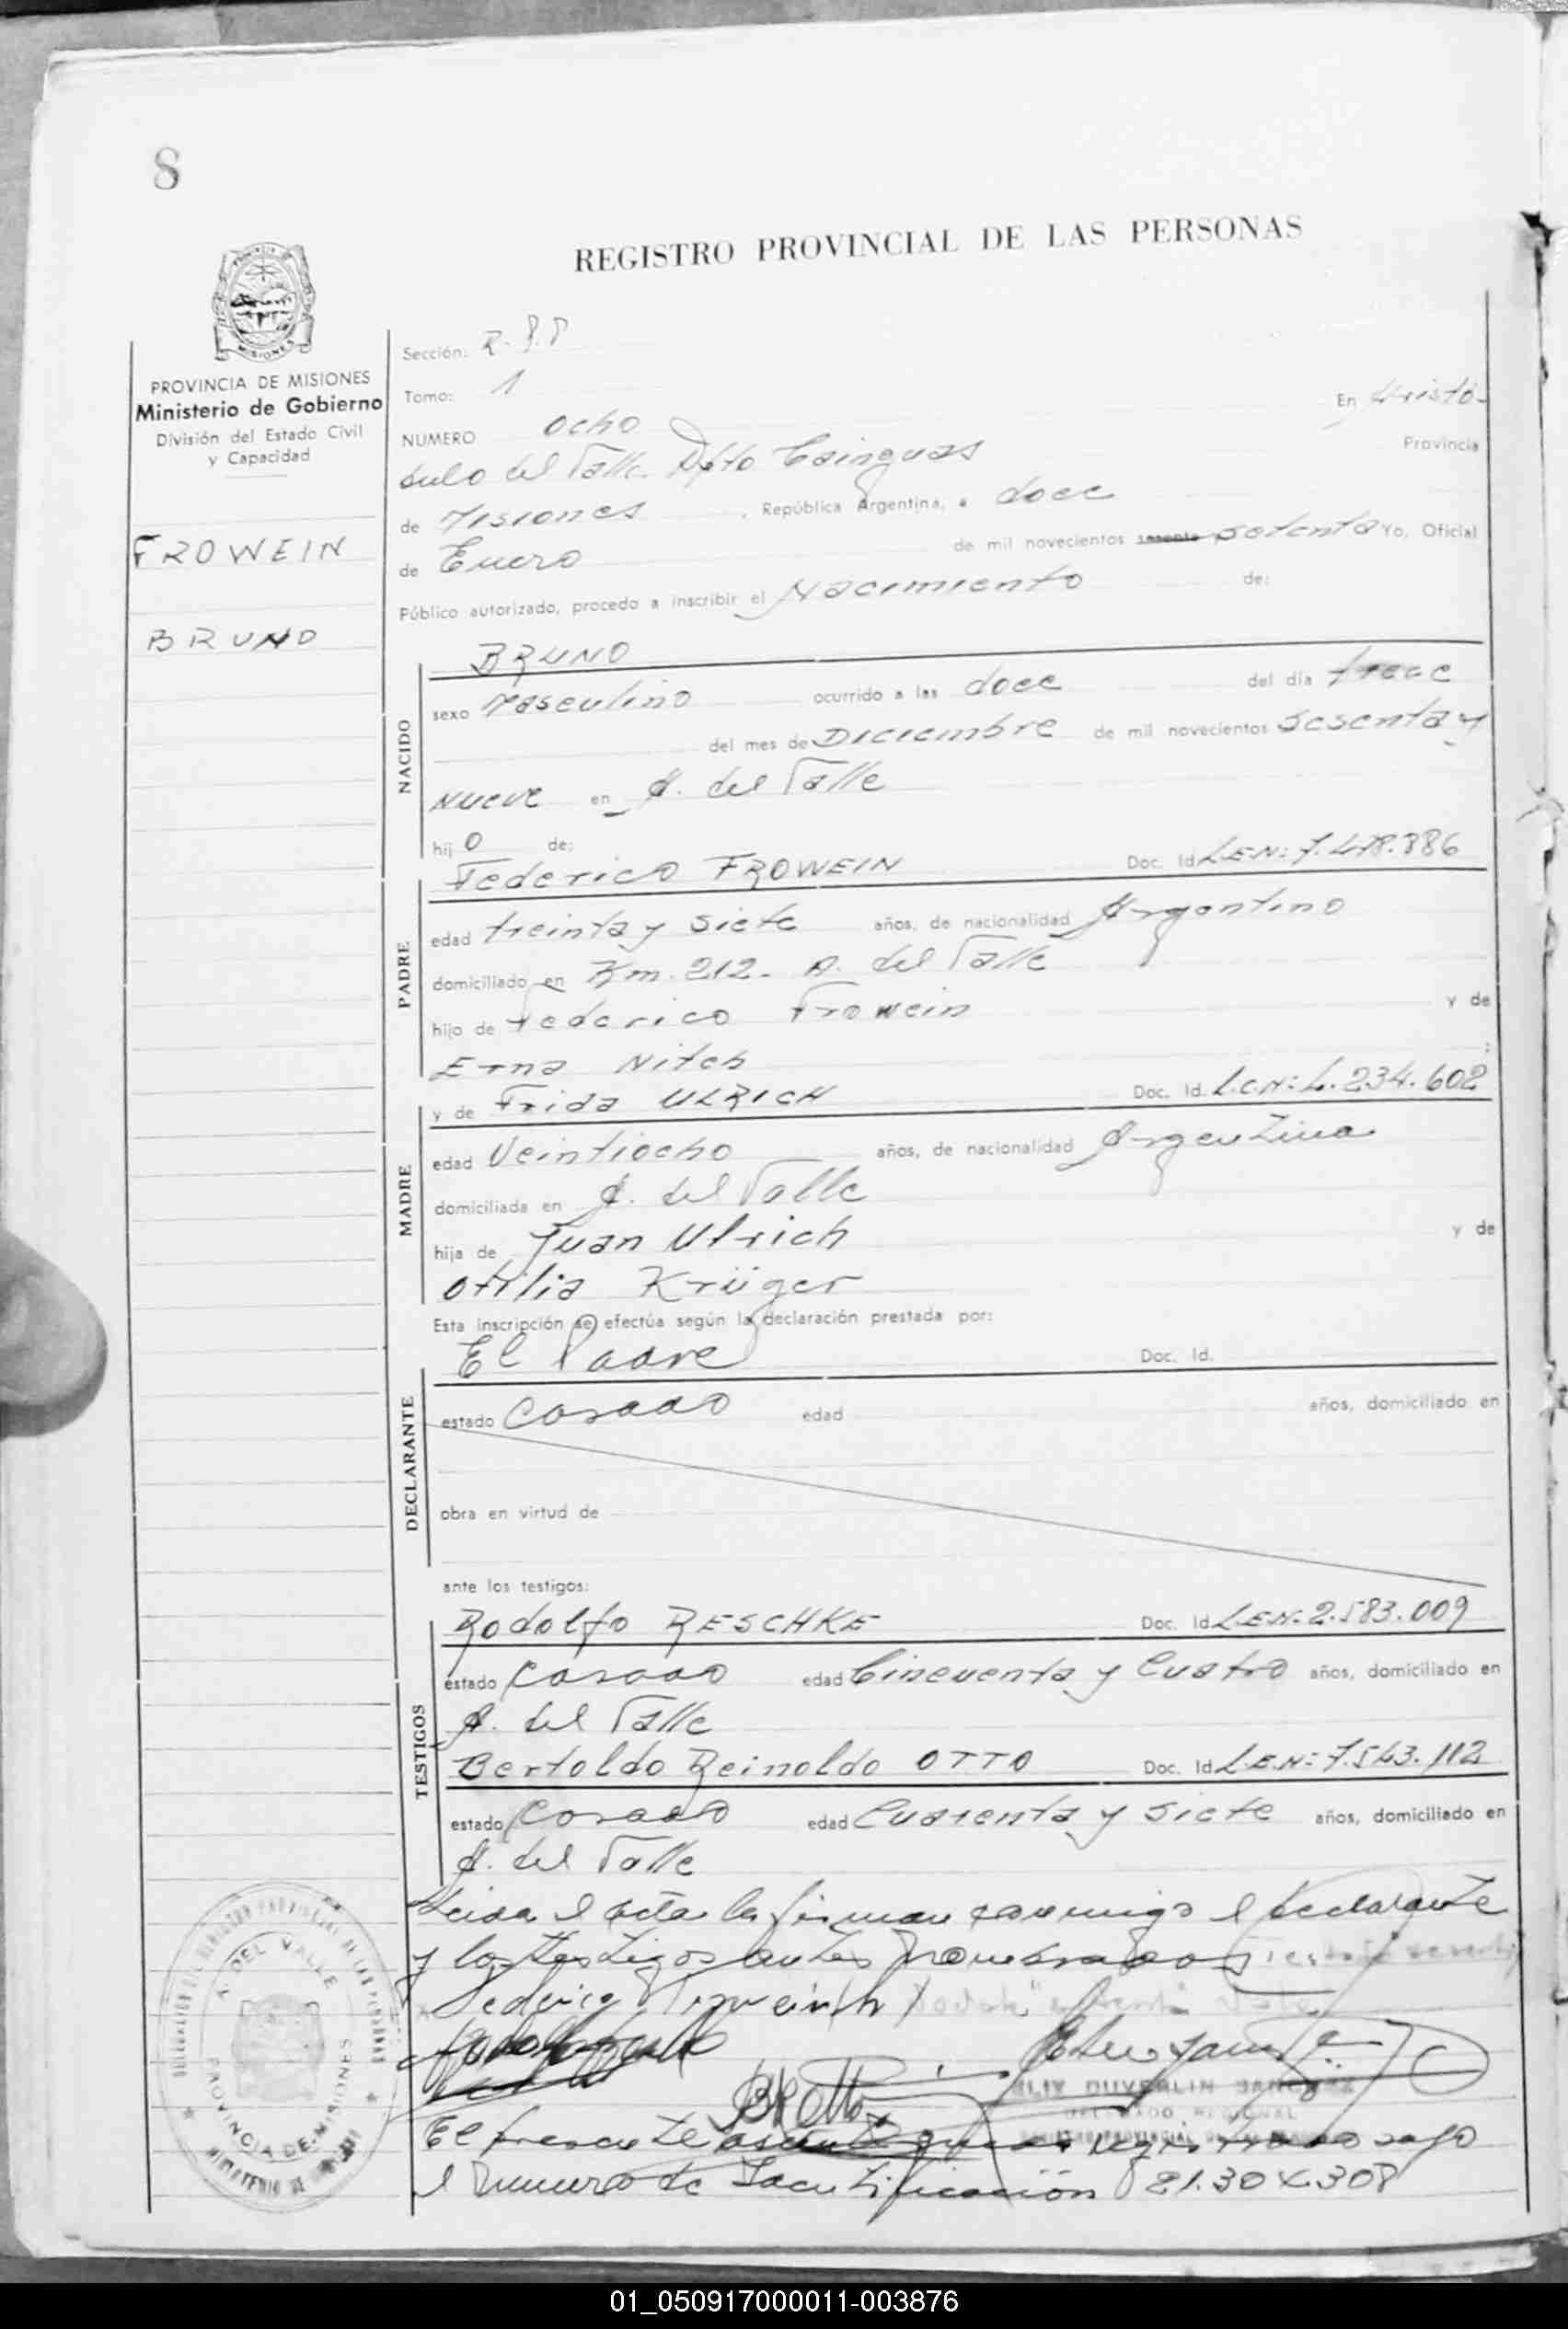 8
REGISTRO PROVINCIAL DE LAS PERSONAS
MISIONES
PROVINCIA DE MISIONES
Ministerio de Gobierno
División del Estado Civil
y Capacidad
FROWEIN
BRUNO
Sección:
Tomo: 1
En Aristó-
NUMERO ocho
bulo del Valle. Dpto Cainguas Provincia
de Misiones, República Argentina, a doce
de Enero de mil novecientos setenta Yo, Oficial
Público autorizado, procedo a inscribir el Nacimiento de:
NACIDO
BRUNO
sexo Masculino ocurrido a las doce del día trece
del mes de Diciembre de mil novecientos sesenta y
Nueve en A. del Valle
hijo de:
PADRE
Federico FROWEIN Doc. Id. L.E.N: 7.478.886
edad treinta y siete años, de nacionalidad Argentino
domiciliado en Km. 212- A. del Valle
hijo de Federico Frowein y de
Erna Nitch :
MADRE
y de Frida ULRICH Doc. Id. L.C.N: 4.234.602
edad Veintiocho años, de nacionalidad Argentina
domiciliada en A. del Valle
hija de Juan Ulrich y de
Otilia Krüger
Esta inscripción se efectúa según la declaración prestada por:
DECLARANTE
El Padre Doc. Id.
estado Casado edad años, domiciliado en
obra en virtud de
ante los testigos:
TESTIGOS
Rodolfo RESCHKE Doc. Id. L.E.N: 2.583.009
estado Casado edad Cincuenta y Cuatro años, domiciliado en
A. del Valle
Bertoldo Reinoldo OTTO Doc. Id. L.E.N: 7.543.112
estado Casado edad Cuarenta y siete años, domiciliado en
A. del Valle
Leida el acta la firman conmigo el declarante
y los testigos antes nombrados
Federico Frowein
B R Otto
FELIX DUVERLIN SANCHEZ
DELEGADO REGIONAL
El presente asiento registrado bajo
el Numero de Identificación 21.304.308
A. DEL VALLE
PROVINCIA DE MISIONES
01_050917000011-003876